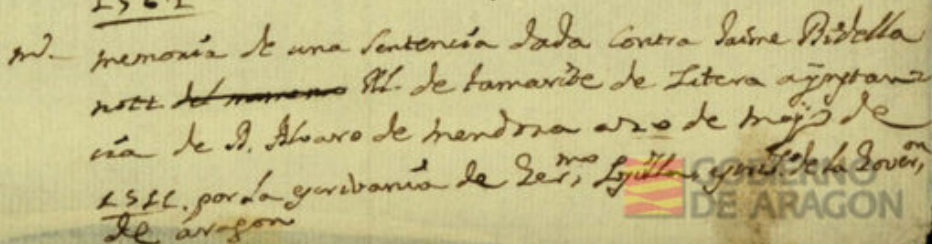 1561
md. memoria de una sentencia dada contra Jaime Bidella
nott del mesmo Sl. de tamarite de Litera a ynstan=
cia de D. Alvaro de mendoza a 20 de mayo de
1511. por la escrivania de Jer.mo de la Gover.on
de aragon
GOBIERNO
DE ARAGON